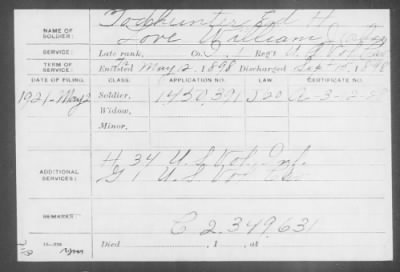 NAME OF SOLDIER: Todhunter, Ed H.
Love William (Alias)
SERVICE: Late rank, Co. 1 Reg't U S Vol. Cav
TERM OF SERVICE: Enlisted May 12, 1898 Discharged Sep. 15, 1898
DATE OF FILING. CLASS. APPLICATION NO. LAW. CERTIFICATE NO.
1921-May 2 Soldier, 1450,391
Widow,
Minor,
ADDITIONAL SERVICES: H 34 U.S. Vol. Inf.
G 1 U.S. Vol Cav
REMARKS: C 2.349.631
Died , 1 , at